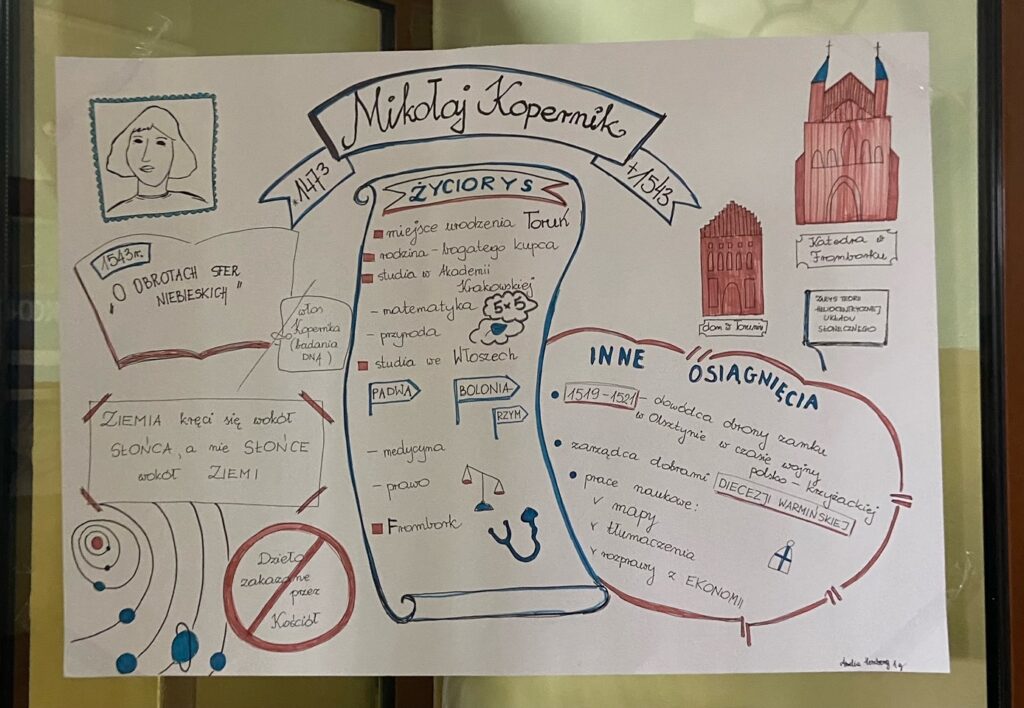 Mikołaj Kopernik
*1473
+1543
ŻYCIORYS
miejsce urodzenia Toruń
rodzina - bogatego kupca
studia w Akademii
Krakowskiej
- matematyka
5×5
- przyroda
studia we Włoszech
PADWA
BOLONIA
RZYM
- medycyna
- prawo
Frombork
1543r.
"O OBROTACH SFER
NIEBIESKICH"
włos
Kopernika
(badania
DNA)
ZIEMIA kręci się wokół
SŁOŃCA, a nie SŁOŃCE
wokół ZIEMI
Dzieło
zakazane
przez
Kościół
Katedra w
Fromborku
dom w Toruniu
ZARYS TEORII
HELIOCENTRYCZNEJ
UKŁADU
SŁONECZNEGO
INNE OSIĄGNIĘCIA
1519-1521 - dowódca obrony zamku
w Olsztynie w czasie wojny
polsko - krzyżackiej
zarządca dobrami DIECEZJI WARMIŃSKIEJ
prace naukowe:
v mapy
v tłumaczenia
v rozprawy z EKONOMII